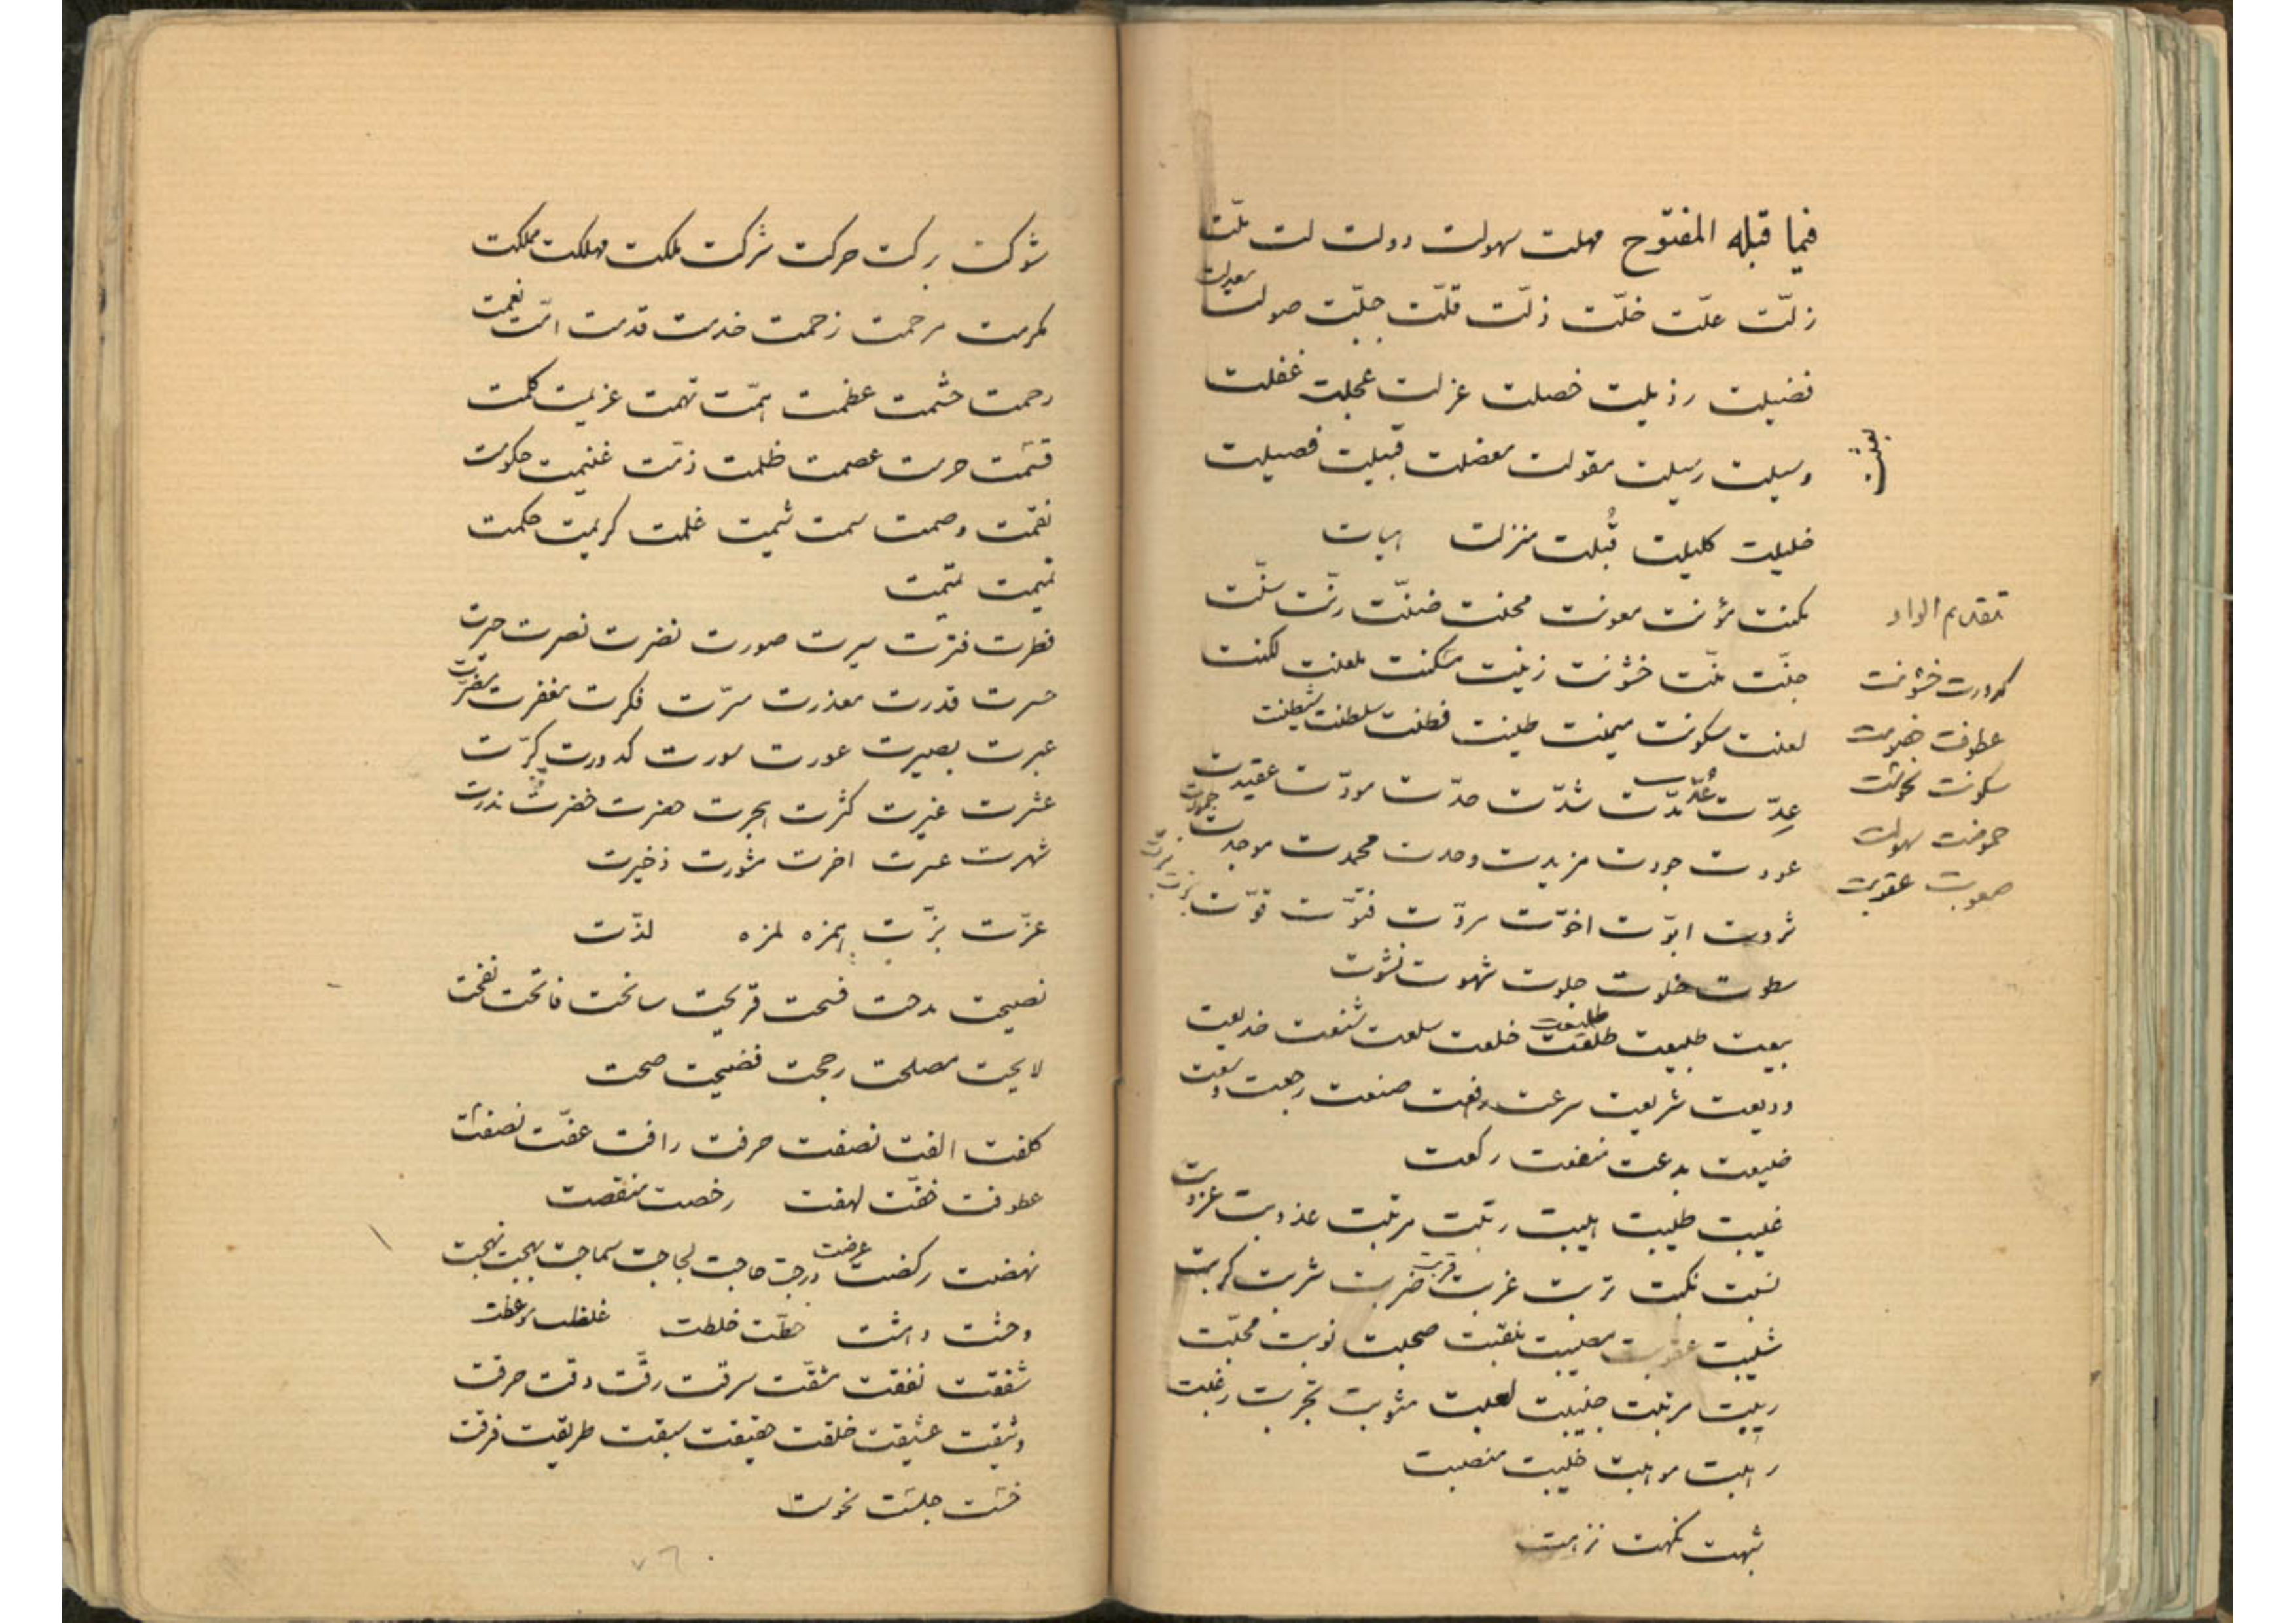 فيما قبله المفتوح مهلت سهولت دولت لت ملّت
زلّت علّت خلّت ذلّت قلّت جبلّت صولت معدلت
فضيلت رذيلت خصلت عزلت عجلت غفلت
وسيلت رسيلت مقولت معضلت قبيلت فصيلت
خليلت كليلت قُبلت منزلت
مكنت مؤنت معونت محنت ضنّت رنّت سنّت
جنّت منّت خشونت زينت مسكنت ملعنت لكنت
لعنت سكونت ميمنت طينت فطنت سلطنت شيطنت
عِدّت عُدّت مدّت شدّت حدّت مودّت عقيدت
عودت جودت مزيدت وحدت محمدت موجدت
ثروت ابوّت اخوّت مروّت فتوّت قوّت
سطوت خلوت جلوت شهوت نشوت
بيعت طبيعت طلعت طليعت خلعت سلعت شنعت خديعت
وديعت شريعت سرعت رفعت صنعت رجعت وسعت
ضيعت بدعت منفعت ركعت
غيبت طيبت هيبت رتبت مرتبت عذوبت عزوبت
نسبت نكبت تربت غربت قربت ضربت شربت كربت
شيبت عقوبت مصيبت منقبت صحبت نوبت محبّت
ريبت مرتبت جنيبت لعبت مثوبت تجربت رغبت
رهبت موهبت خيبت منصبت
شبهت نكهت نزهت
تقديم الواو
كدورت خشونت
عطوفت خصومت
سكونت نحوست
حموضت سهولت
صعوبت عقوبت
شوكت بركت حركت شركت ملكت مهلكت مملكت
مكرمت مرحمت زحمت خدمت قدمت امّت نعمت
رحمت حشمت عظمت همّت تهمت عزيمت كلمت
قسمت حرمت عصمت ظلمت ذمّت غنيمت حكومت
نقمت وصمت سمت شيمت غلمت كريمت حكمت
تميمت تتميمت
فطرت فترت سيرت صورت نضرت نصرت حيرت
حسرت قدرت معذرت مسرّت فكرت مغفرت مضرّت
عبرت بصيرت عورت سورت كدورت كرّت
عشرت غيرت كثرت هجرت حضرت خضرت ندرت
شهرت عسرت اخرت مشورت ذخيرت
عزّت بزّت همزه لمزه لذّت
نصيحت مدحت فسحت قريحت سانحت فاتحت نفحت
لايحت مصلحت رجحت فضيحت صحت
كلفت الفت نصفت حرفت رافت عفّت نصفت
عطوفت خفّت لهفت رخصت منقصت
نهضت ركضت عرضت درجت حاجت لجاجت سماجت بهجت نهجت
وحشت دهشت خطّت خلطت غلظت موعظت
شفقت نفقت مشقّت سرقت رقّت دقت حرقت
وثيقت عشيقت خلقت حقيقت سبقت طريقت فرقت
خسّت جلست نحوست
٧٦